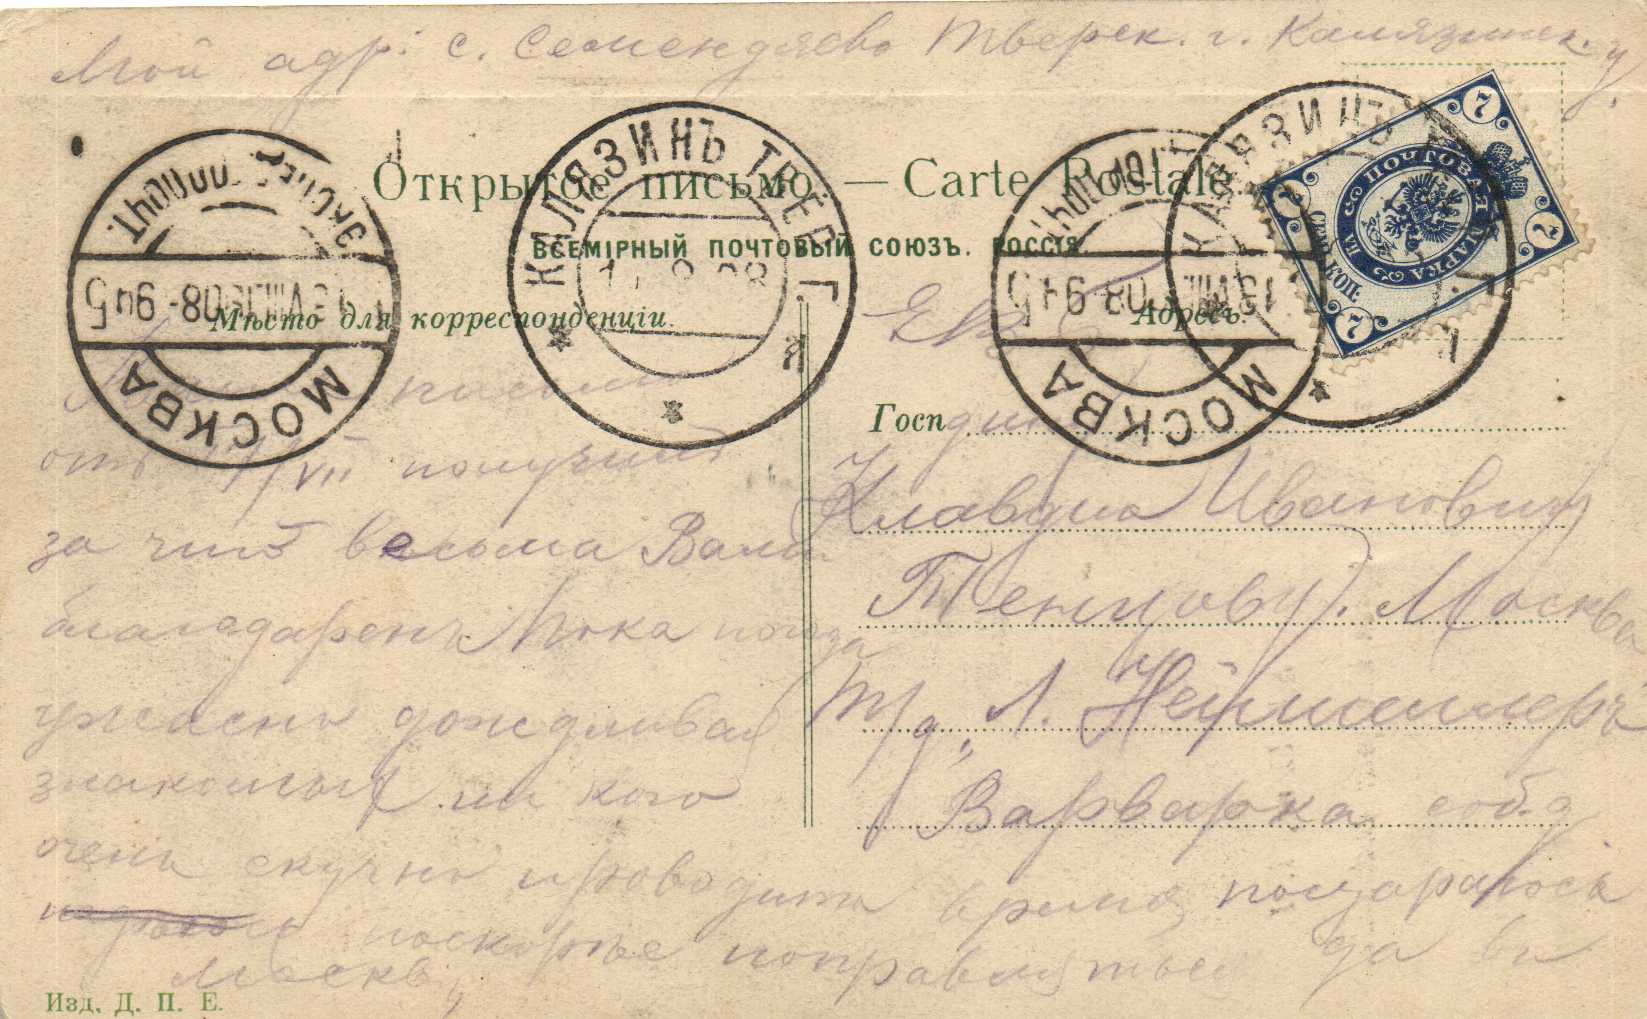 Мой адр: с. Семендяево Тверск. г. Калязинск. у.
Открытое письмо. — Carte Postale.
ВСЕМІРНЫЙ ПОЧТОВЫЙ СОЮЗЪ. РОССІЯ.
Мѣсто для корреспонденціи.
Адресъ.
КАЛЯЗИНЪ ТВЕР. Г.
МОСКВА
VIII 1908 - 9 45
МОСКВА
13 VIII 08 - 9 45
КАЛЯЗИНЪ
ПОЧТОВАЯ МАРКА
СЕМЬ КОП.
7 7 7 7
письмо
отъ VII получилъ
за что весьма Вамъ
благодаренъ Пока погода
ужасно дождливая
знакомыхъ ни кого
очень скучно проводить время постараюсь
поскорѣе поправляться да въ
Москву
Госп
Клавдию Ивановичу
Тенцову. Москва
Т/д. Л. Нейшеллеръ
Варварка соб. д
Изд. Д. П. Е.